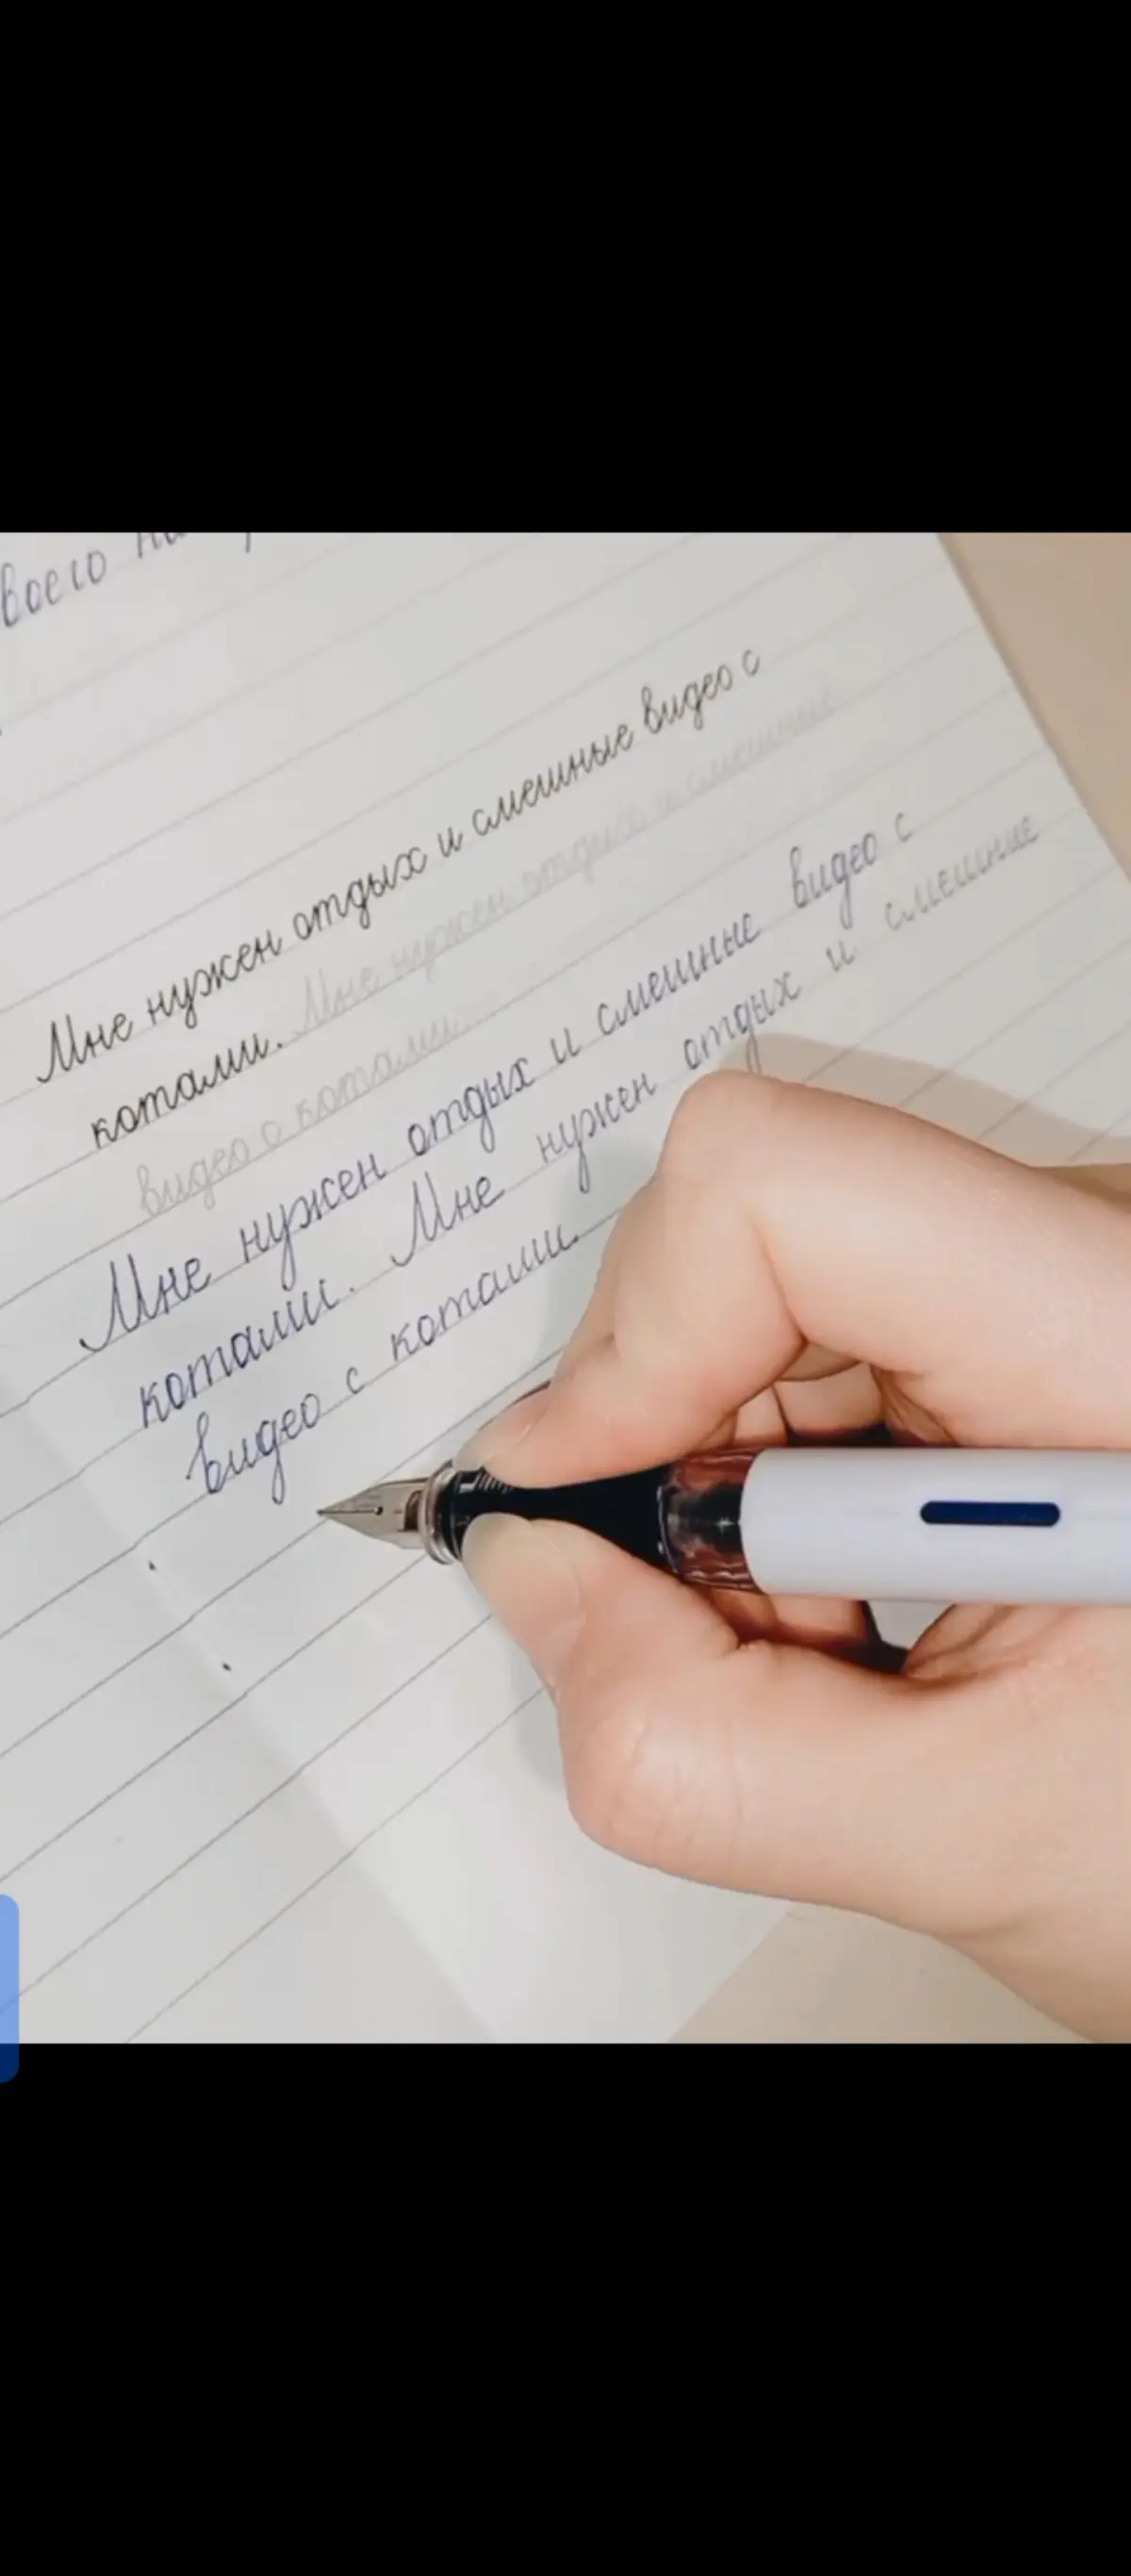 воего
Мне нужен отдых и смешные видео с
котами. Мне нужен отдых и смешные
видео с котами.
Мне нужен отдых и смешные видео с
котами. Мне нужен отдых и смешные
видео с котами.